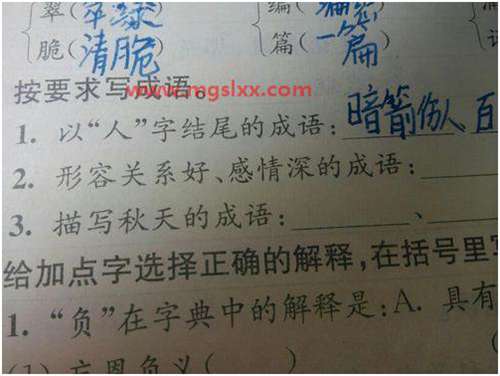 翠(翠绿) 编(
脆(清脆) 篇(一篇)
按要求写成语。
www.mgslxx.com
1. 以“人”字结尾的成语:暗箭伤人 百
2. 形容关系好、感情深的成语:
3. 描写秋天的成语: 、
给加点字选择正确的解释,在括号里写
1. “负”在字典中的解释是:A. 具有
(1) 忘恩负义( ) (